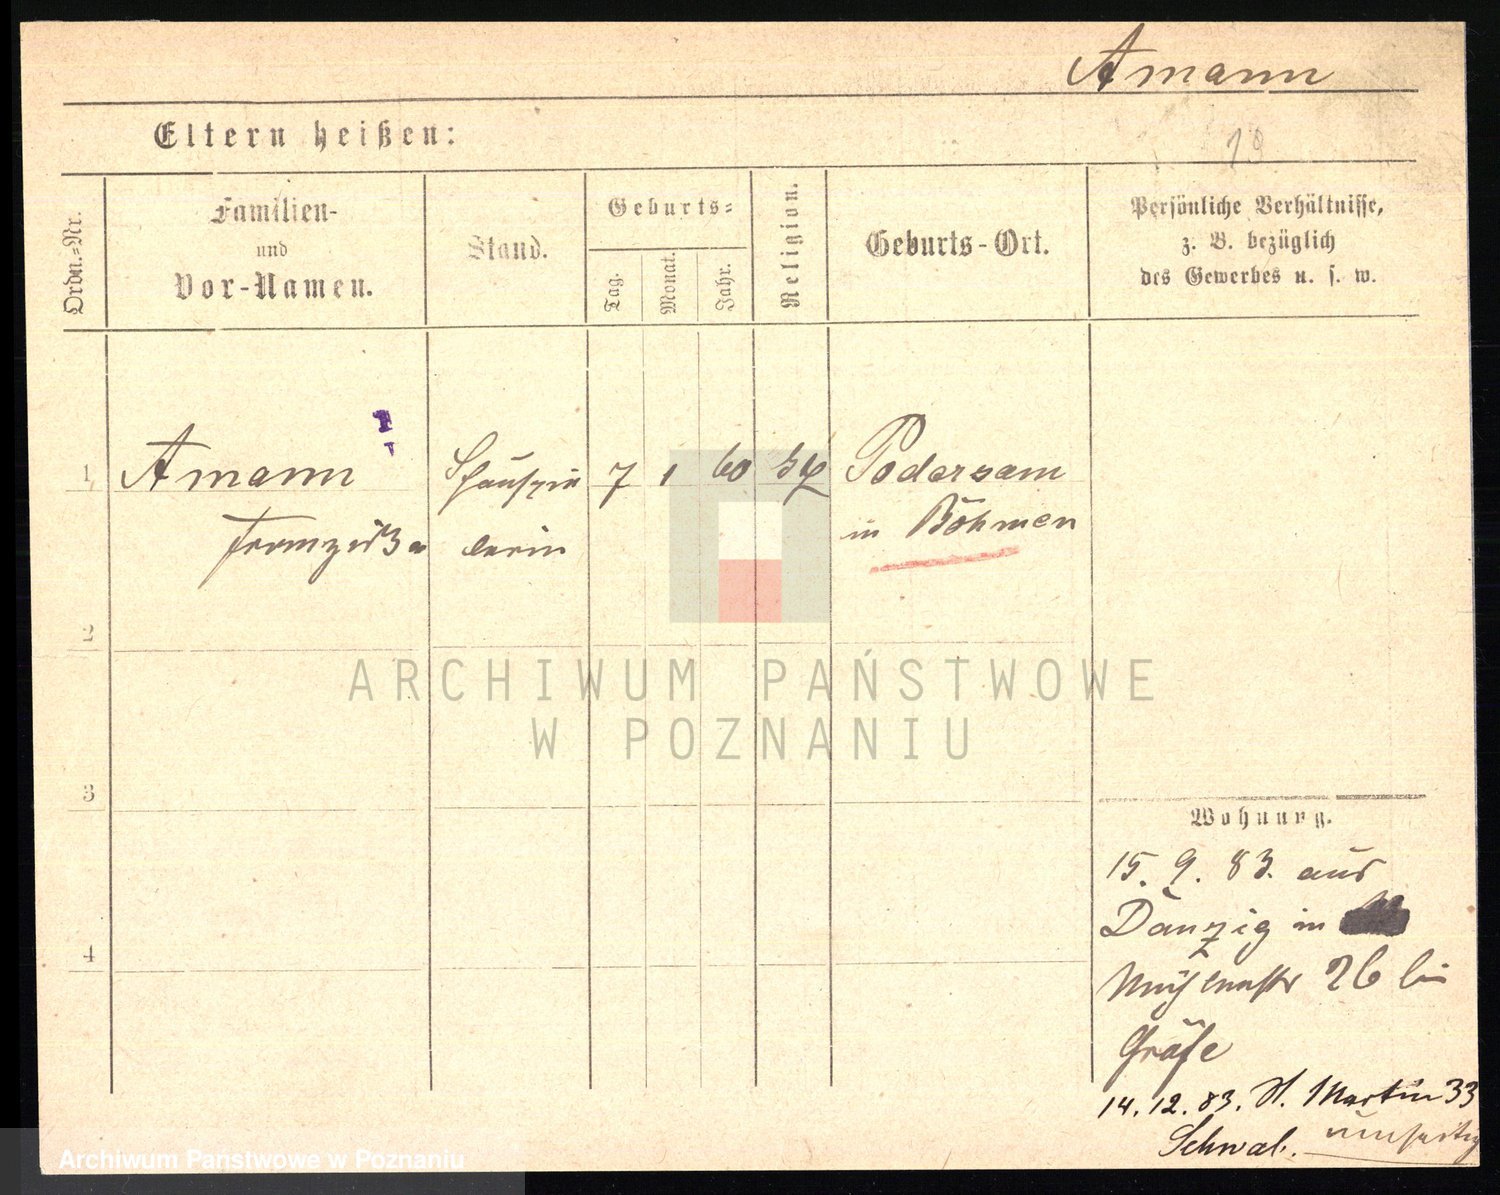 Amann
Eltern heißen:
19
Ordn.-Nr.
Familien-
und
Vor-Namen.
Stand.
Geburts-
Tag.
Monat.
Jahr.
Religion.
Geburts-Ort.
Persönliche Verhältnisse,
z. B. bezüglich
des Gewerbes u. s. w.
1
1 Amann Schauspie 7 1 60 Podersam
Franziska lerin in Böhmen
2
3
4
ARCHIWUM PAŃSTWOWE
W POZNANIU
Wohnung.
15. 9. 83. aus
Danzig in
Mühlenstr 26 bei
Gräfe
14. 12. 83. St. Martin 33
Schwab. umseitig
Archiwum Państwowe w Poznaniu